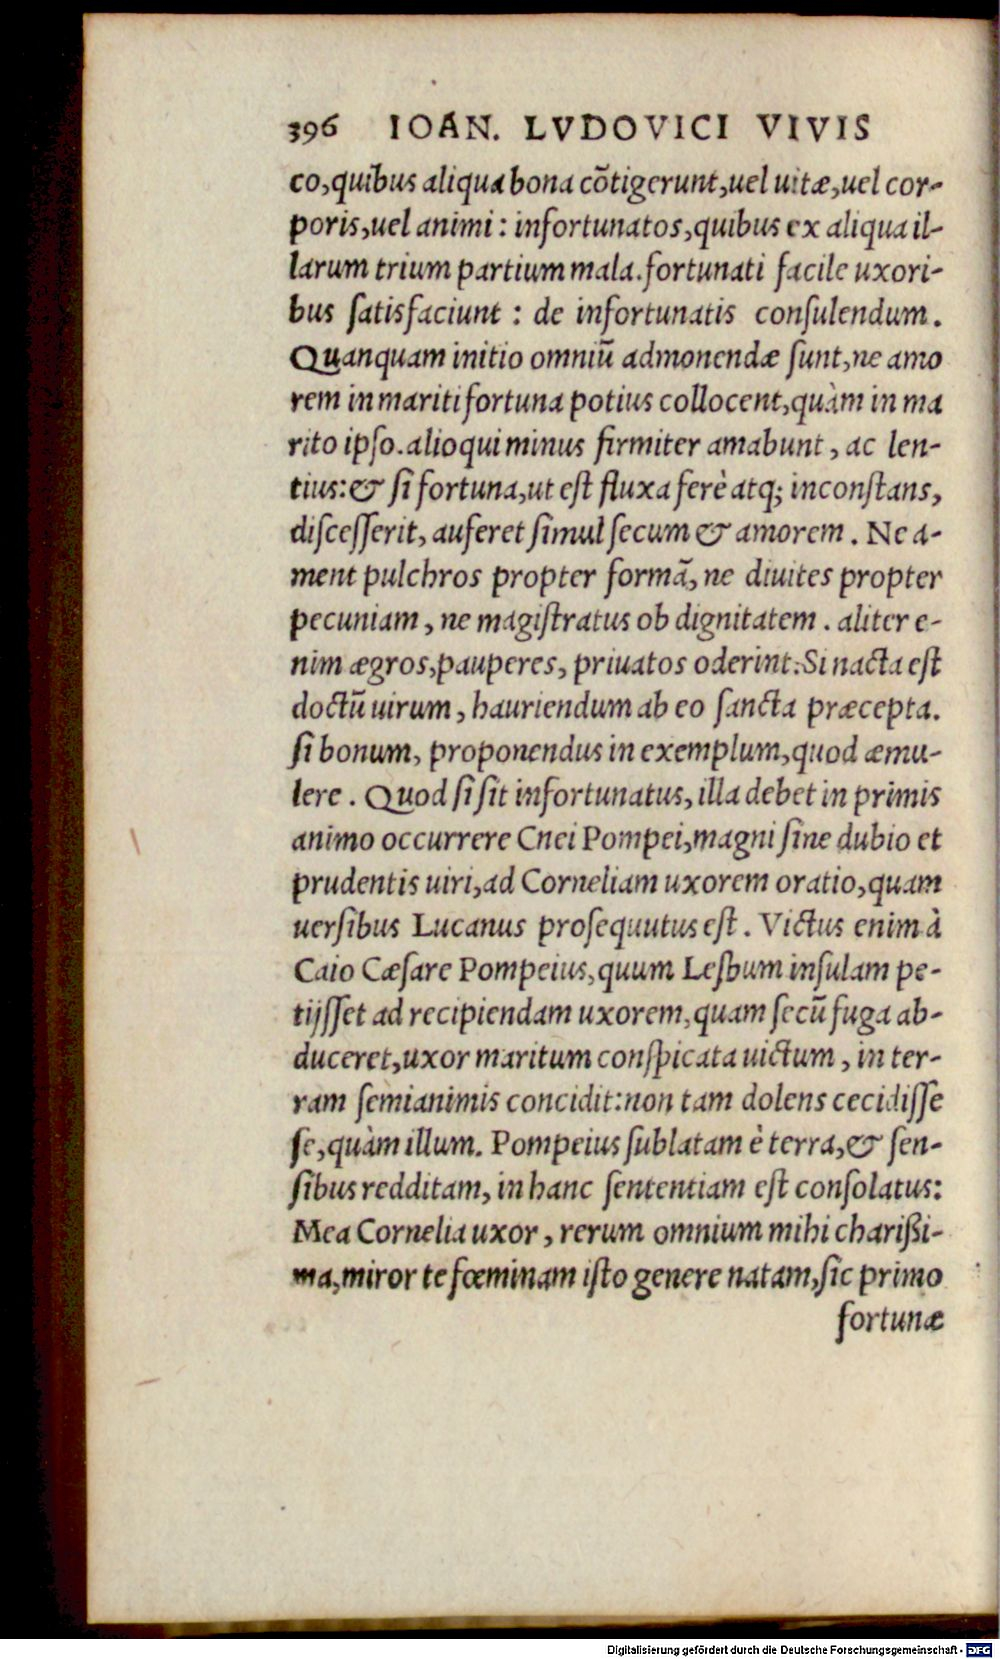 396 IOAN. LVDOVICI VIVIS
co,quibus aliqua bona cõtigerunt,uel uitæ,uel cor-
poris,uel animi: infortunatos,quibus ex aliqua il-
larum trium partium mala.fortunati facile uxori-
bus ſatisfaciunt: de infortunatis conſulendum.
Quanquam initio omniũ admonendæ ſunt,ne amo
rem in mariti fortuna potius collocent,quàm in ma
rito ipſo.alioqui minus firmiter amabunt, ac len-
tius:& ſi fortuna,ut eſt fluxa ferè atq; inconſtans,
diſceſſerit, auferet ſimul ſecum & amorem. Ne a-
ment pulchros propter formã, ne diuites propter
pecuniam, ne magiſtratus ob dignitatem. aliter e-
nim ægros,pauperes, priuatos oderint:Si nacta eſt
doctũ uirum, hauriendum ab eo ſancta præcepta.
ſi bonum, proponendus in exemplum,quod æmu-
lere. Quod ſi ſit infortunatus, illa debet in primis
animo occurrere Cnei Pompei,magni ſine dubio et
prudentis uiri,ad Corneliam uxorem oratio,quam
uerſibus Lucanus proſequutus eſt. Victus enim à
Caio Cæſare Pompeius,quum Lesbum inſulam pe-
tijſſet ad recipiendam uxorem,quam ſecũ fuga ab-
duceret,uxor maritum conſpicata uictum, in ter-
ram ſemianimis concidit:non tam dolens cecidiſſe
ſe,quàm illum. Pompeius ſublatam è terra,& ſen-
ſibus redditam, in hanc ſententiam eſt conſolatus:
Mea Cornelia uxor, rerum omnium mihi charißi-
ma,miror te fœminam iſto genere natam,ſic primo
fortunæ
Digitalisierung gefördert durch die Deutsche Forschungsgemeinschaft - DFG